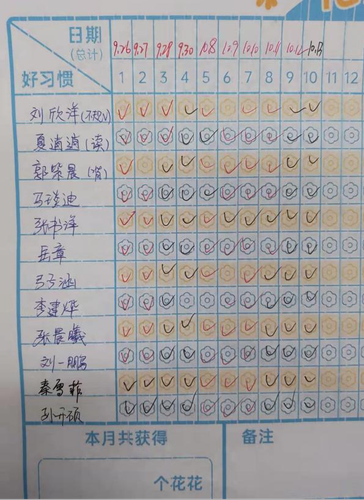 日期 9.26 9.27 9.28 9.30 10.8 10.9 10.10 10.11 10.12 10.13
(总计)
好习惯 1 2 3 4 5 6 7 8 9 10 11 12
刘欣洋
夏逍逍(读)
郭荣晨
马瑛迪
张书洋
岳章
弓子涵
李建烨
张晨曦
刘一鹏
秦雪菲
孙一硕
本月共获得 备注
个花花